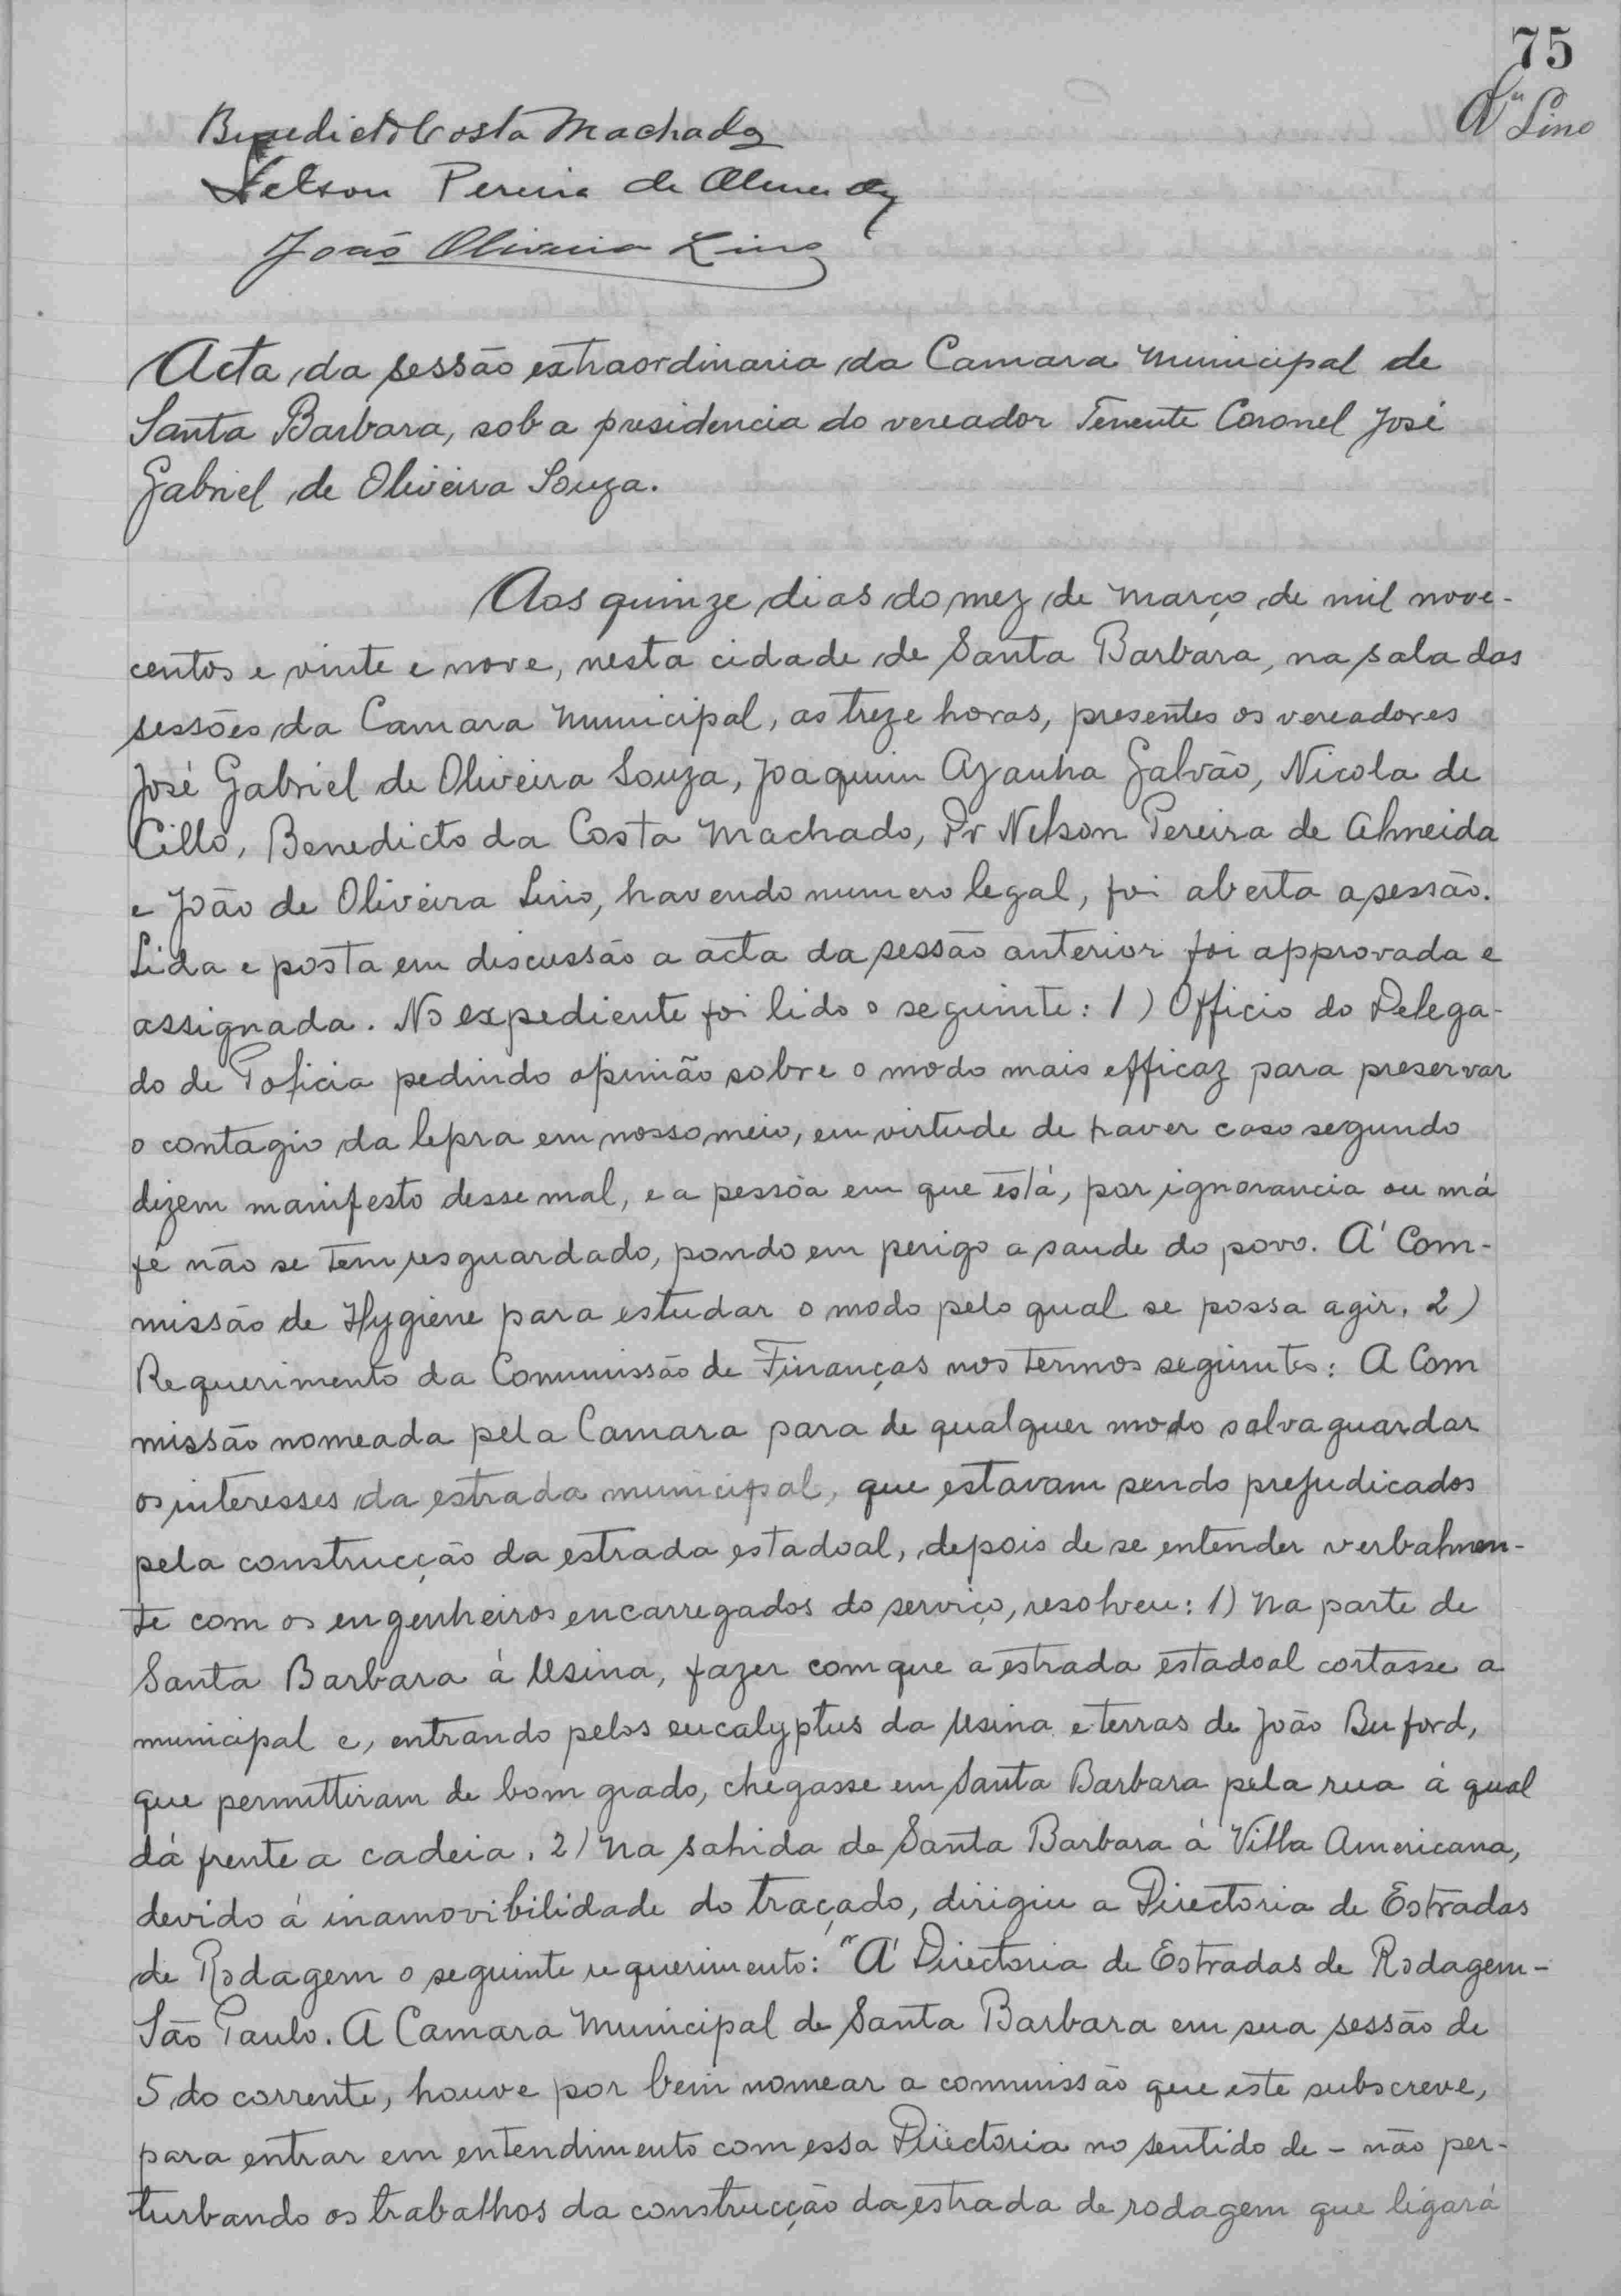 75
Lino
Benedicto Costa Machado
Nelson Pereira de Almeida
João Oliveira Lino
Acta da sessão extraordinaria da Camara Municipal de
Santa Barbara, sob a presidencia do vereador Tenente Coronel José
Gabriel de Oliveira Souza.
Aos quinze dias do mez de Março de mil nove-
centos e vinte e nove, nesta cidade de Santa Barbara, na sala das
sessões da Camara Municipal, as treze horas, presentes os vereadores
José Gabriel de Oliveira Souza, Joaquim Azanha Galvão, Nicola de
Cillo, Benedicto da Costa Machado, Dr Nelson Pereira de Almeida
e João de Oliveira Lino, havendo numero legal, foi aberta a sessão.
Lida e posta em discussão a acta da sessão anterior foi approvada e
assignada. No expediente foi lido o seguinte: 1) Officio do Delega-
do de Policia pedindo opinião sobre o modo mais efficaz para preservar
o contagio da lepra em nosso meio, em virtude de haver caso segundo
dizem manifesto desse mal, e a pessôa em que está, por ignorancia ou má
fé não se tem resguardado, pondo em perigo a saude do povo. Á Com-
missão de Hygiene para estudar o modo pelo qual se possa agir. 2)
Requerimento da Commissão de Finanças nos termos seguintes: A Com
missão nomeada pela Camara para de qualquer modo salvaguardar
os interesses da estrada municipal, que estavam sendo prejudicados
pela construcção da estrada estadoal, depois de se entender verbalmen-
te com os engenheiros encarregados do serviço, resolveu: 1) Na parte de
Santa Barbara á Usina, fazer com que a estrada estadoal cortasse a
municipal e, entrando pelos eucalyptus da Usina e terras de João Buford,
que permittiram de bom grado, chegasse em Santa Barbara pela rua á qual
dá frente a cadeia. 2) Na sahida de Santa Barbara á Villa Americana,
devido á inamovibilidade do traçado, dirigiu a Directoria de Estradas
de Rodagem o seguinte requerimento: "Á Directoria de Estradas de Rodagem -
São Paulo. A Camara Municipal de Santa Barbara em sua sessão de
5 do corrente, houve por bem nomear a commissão que este subscreve,
para entrar em entendimento com essa Directoria no sentido de - não per-
turbando os trabalhos da construcção da estrada de rodagem que ligará